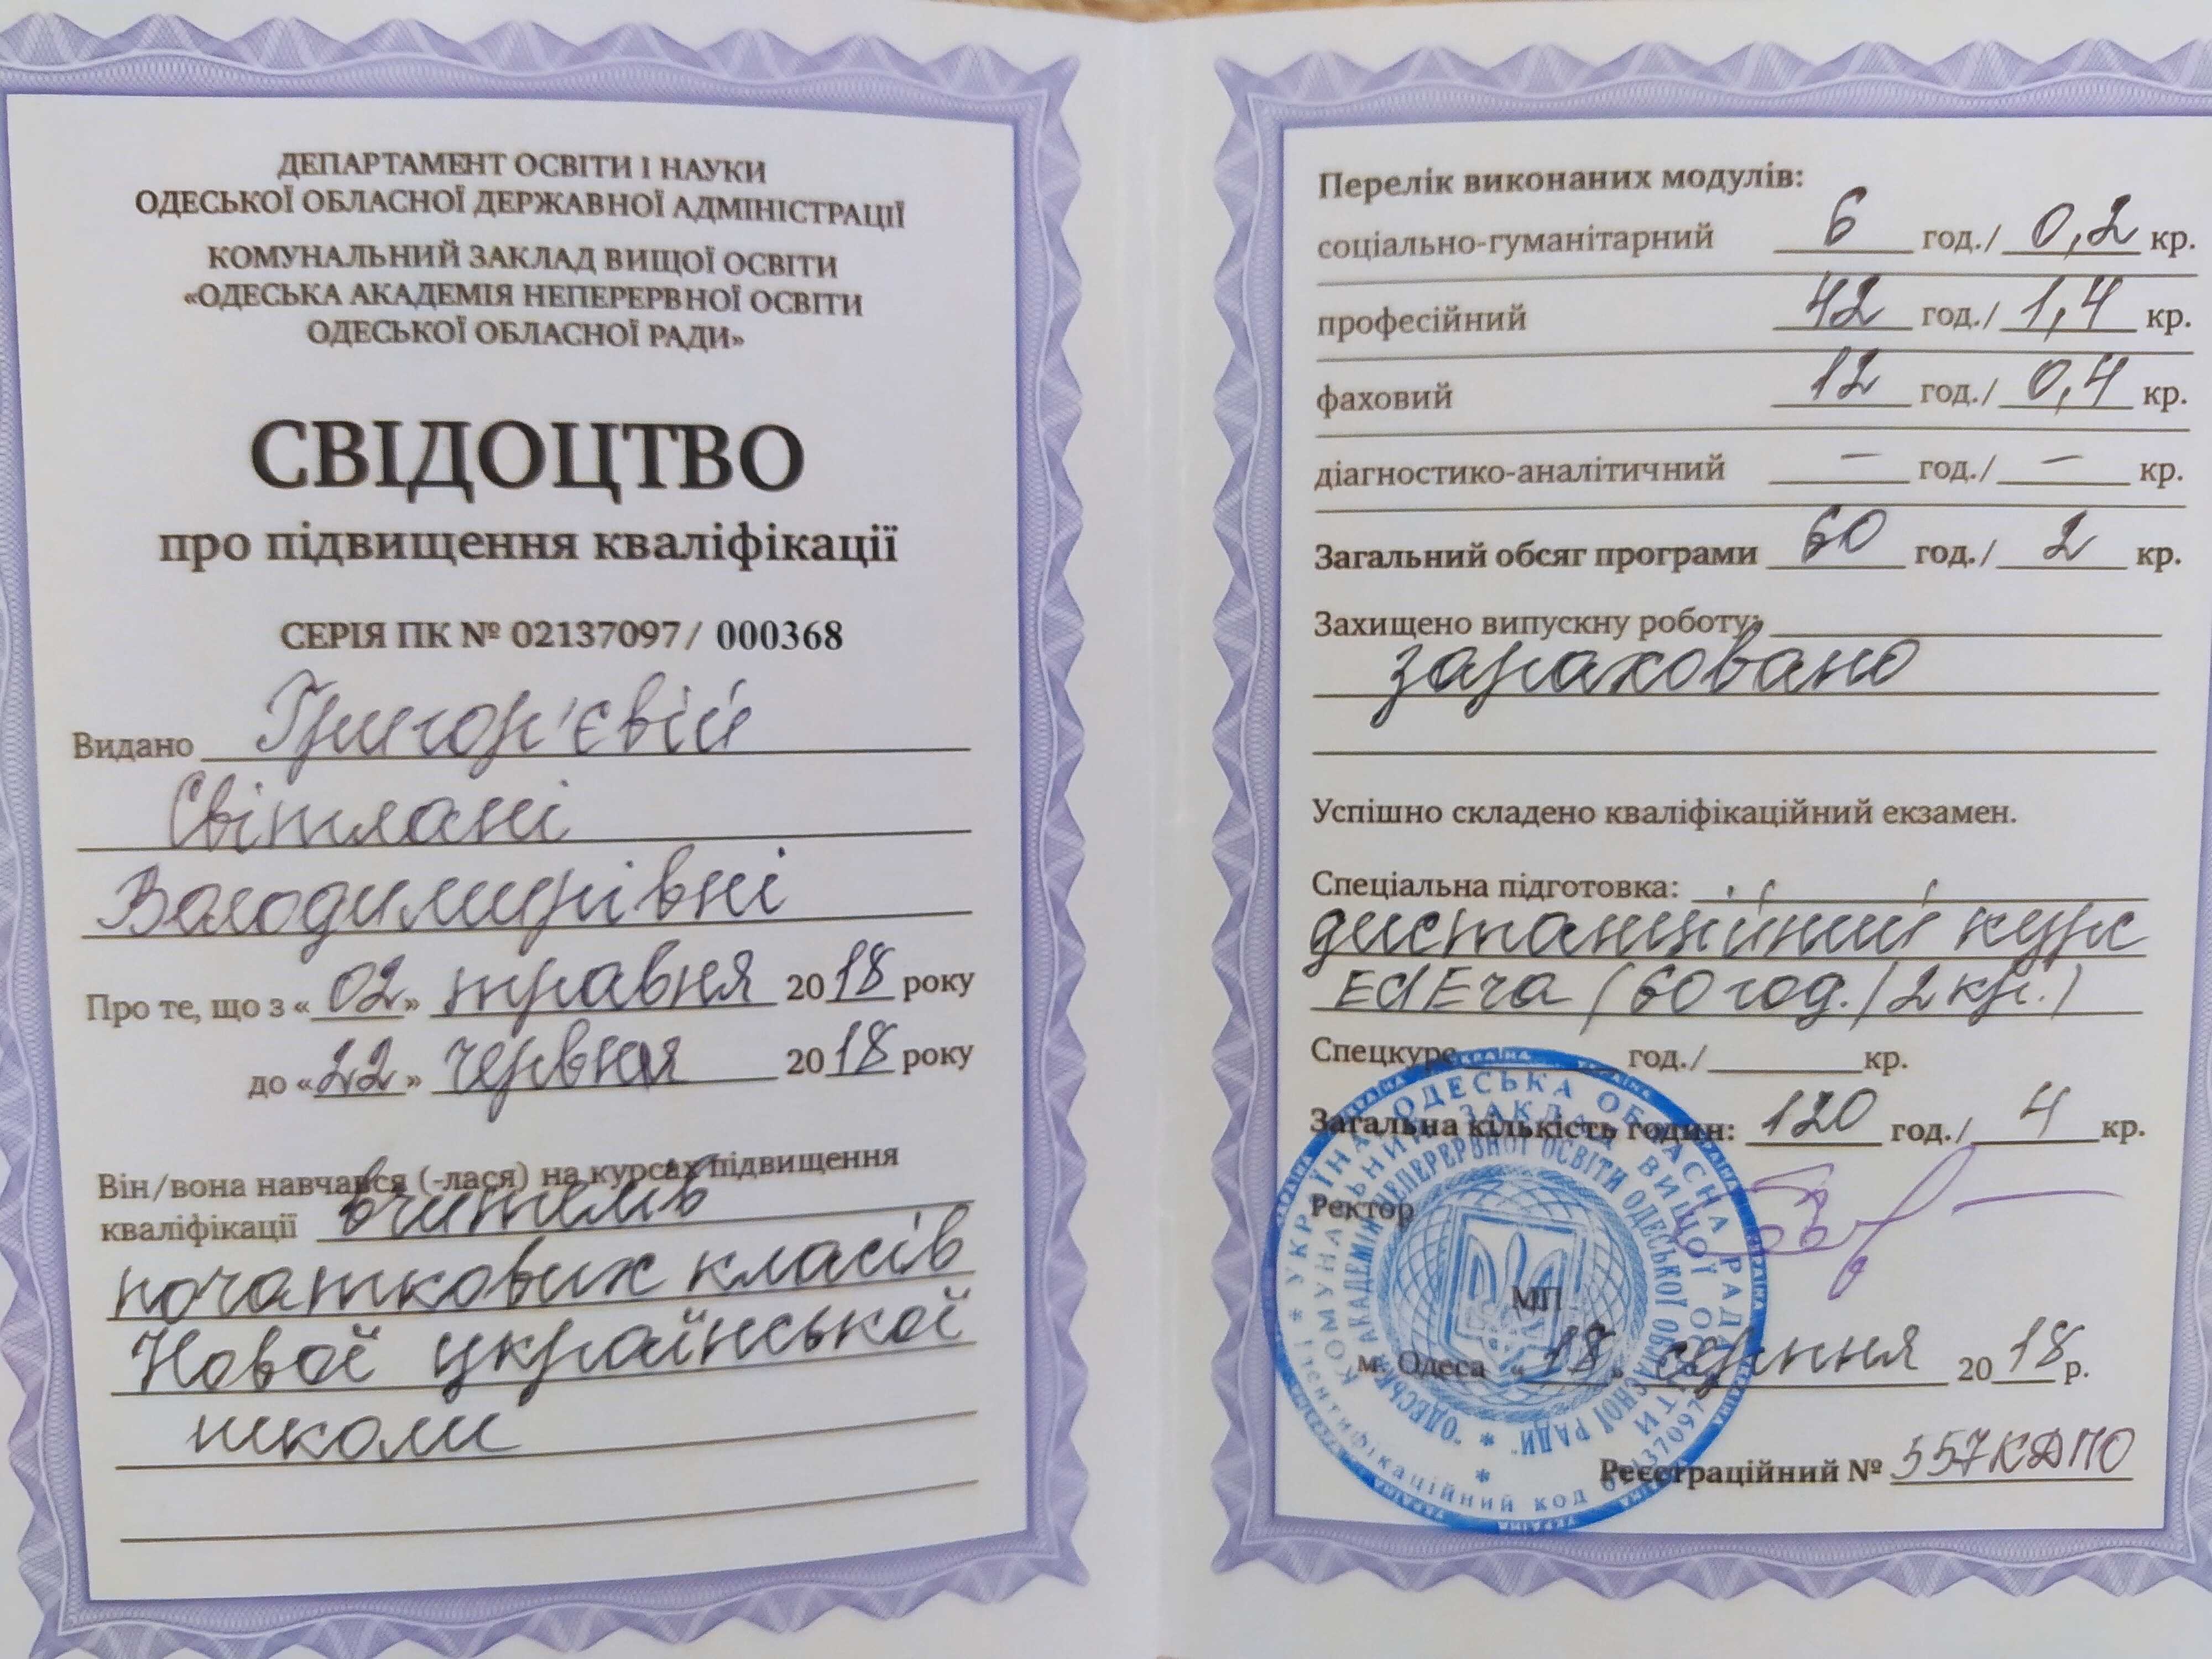 ДЕПАРТАМЕНТ ОСВІТИ І НАУКИ
ОДЕСЬКОЇ ОБЛАСНОЇ ДЕРЖАВНОЇ АДМІНІСТРАЦІЇ
КОМУНАЛЬНИЙ ЗАКЛАД ВИЩОЇ ОСВІТИ
«ОДЕСЬКА АКАДЕМІЯ НЕПЕРЕРВНОЇ ОСВІТИ
ОДЕСЬКОЇ ОБЛАСНОЇ РАДИ»
СВІДОЦТВО
про підвищення кваліфікації
СЕРІЯ ПК № 02137097/ 000368
Видано Григор'євій
Світлані
Володимирівні
Про те, що з «02» травня 2018 року
до «22» червня 2018 року
Він/вона навчався (-лася) на курсах підвищення
кваліфікації вчителів
початкових класів
Нової української
школи
Перелік виконаних модулів:
соціально-гуманітарний 6 год./ 0,2 кр.
професійний 42 год./ 1,4 кр.
фаховий 12 год./ 0,4 кр.
діагностико-аналітичний — год./ — кр.
Загальний обсяг програми 60 год./ 2 кр.
Захищено випускну роботу:
зараховано
Успішно складено кваліфікаційний екзамен.
Спеціальна підготовка:
дистанційний курс
EdEra (60 год./2 кр.)
Спецкурс год./ кр.
Загальна кількість годин: 120 год./ 4 кр.
Ректор
МП
м. Одеса «18» серпня 2018 р.
Реєстраційний № 557КДПО
УКРАЇНА * ОДЕСЬКА ОБЛАСНА РАДА
КОМУНАЛЬНИЙ ЗАКЛАД ВИЩОЇ ОСВІТИ
"ОДЕСЬКА АКАДЕМІЯ НЕПЕРЕРВНОЇ ОСВІТИ ОДЕСЬКОЇ ОБЛАСНОЇ РАДИ"
ідентифікаційний код 02137097